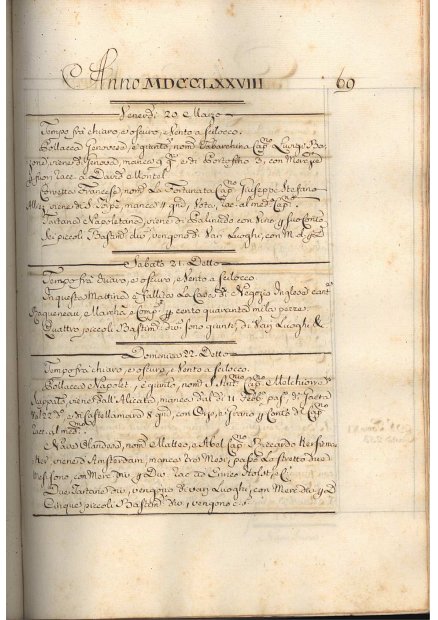 Anno MDCCLXXVIII 69
Venerdi 20 Marzo
Tempo frà chiaro, e oscuro, e Vento a scilocco
Pollacca Genovese, è giunto, nom.ª Tabarchina Cap.no Luigi
viene di Genova, manca 4 g.ⁱ e di Portofino 3, con Merc.
David Montel
Corvetta Francese, nom.ª La Fortunata Cap.no Giuseppe Stefano
viene di S. Torpè, manca 4 gni, Vota, al med.º Cap.no
Tartana Napoletana, viene di Salindro con Vino p suo Conto
Sei piccoli Bastim.ti div.i vengono di Vari Luoghi, con M.
Sabato 21. Detto
Tempo frà chiaro, e oscuro, e Vento a scilocco
In questa Mattina è fallito La Casa di Negozio Inglese
e Comp. p cento quaranta mila pezze
Quattro piccoli Bastim.ti div.i sono giunti, di Vari Luoghi &
Domenica 22. Detto
Tempo frà chiaro, e oscuro, e Vento a scilocco
Pollacca Napolet.ª, è giunto, nom.ª Cap.no Melchiorre
viene dall'Alicata, manca dal dì 11 Feb.º pas.º di Gaeta
e di Castellamare 8 gni, con Orzo, e Grano p Conto di Cap.no
al med.º
Nave Olandese, nom.ª Matteo, e Abel Cap.no Riccardo
viene d'Amsterdam, manca tre Mesi, passò Lo Stretto due
sono, con Merc. div.e p Div.i
Due Tartane div.e, vengono di vari Luoghi, con Merc. div.e p D.
Cinque piccoli Bastim.ti div.i, vengono